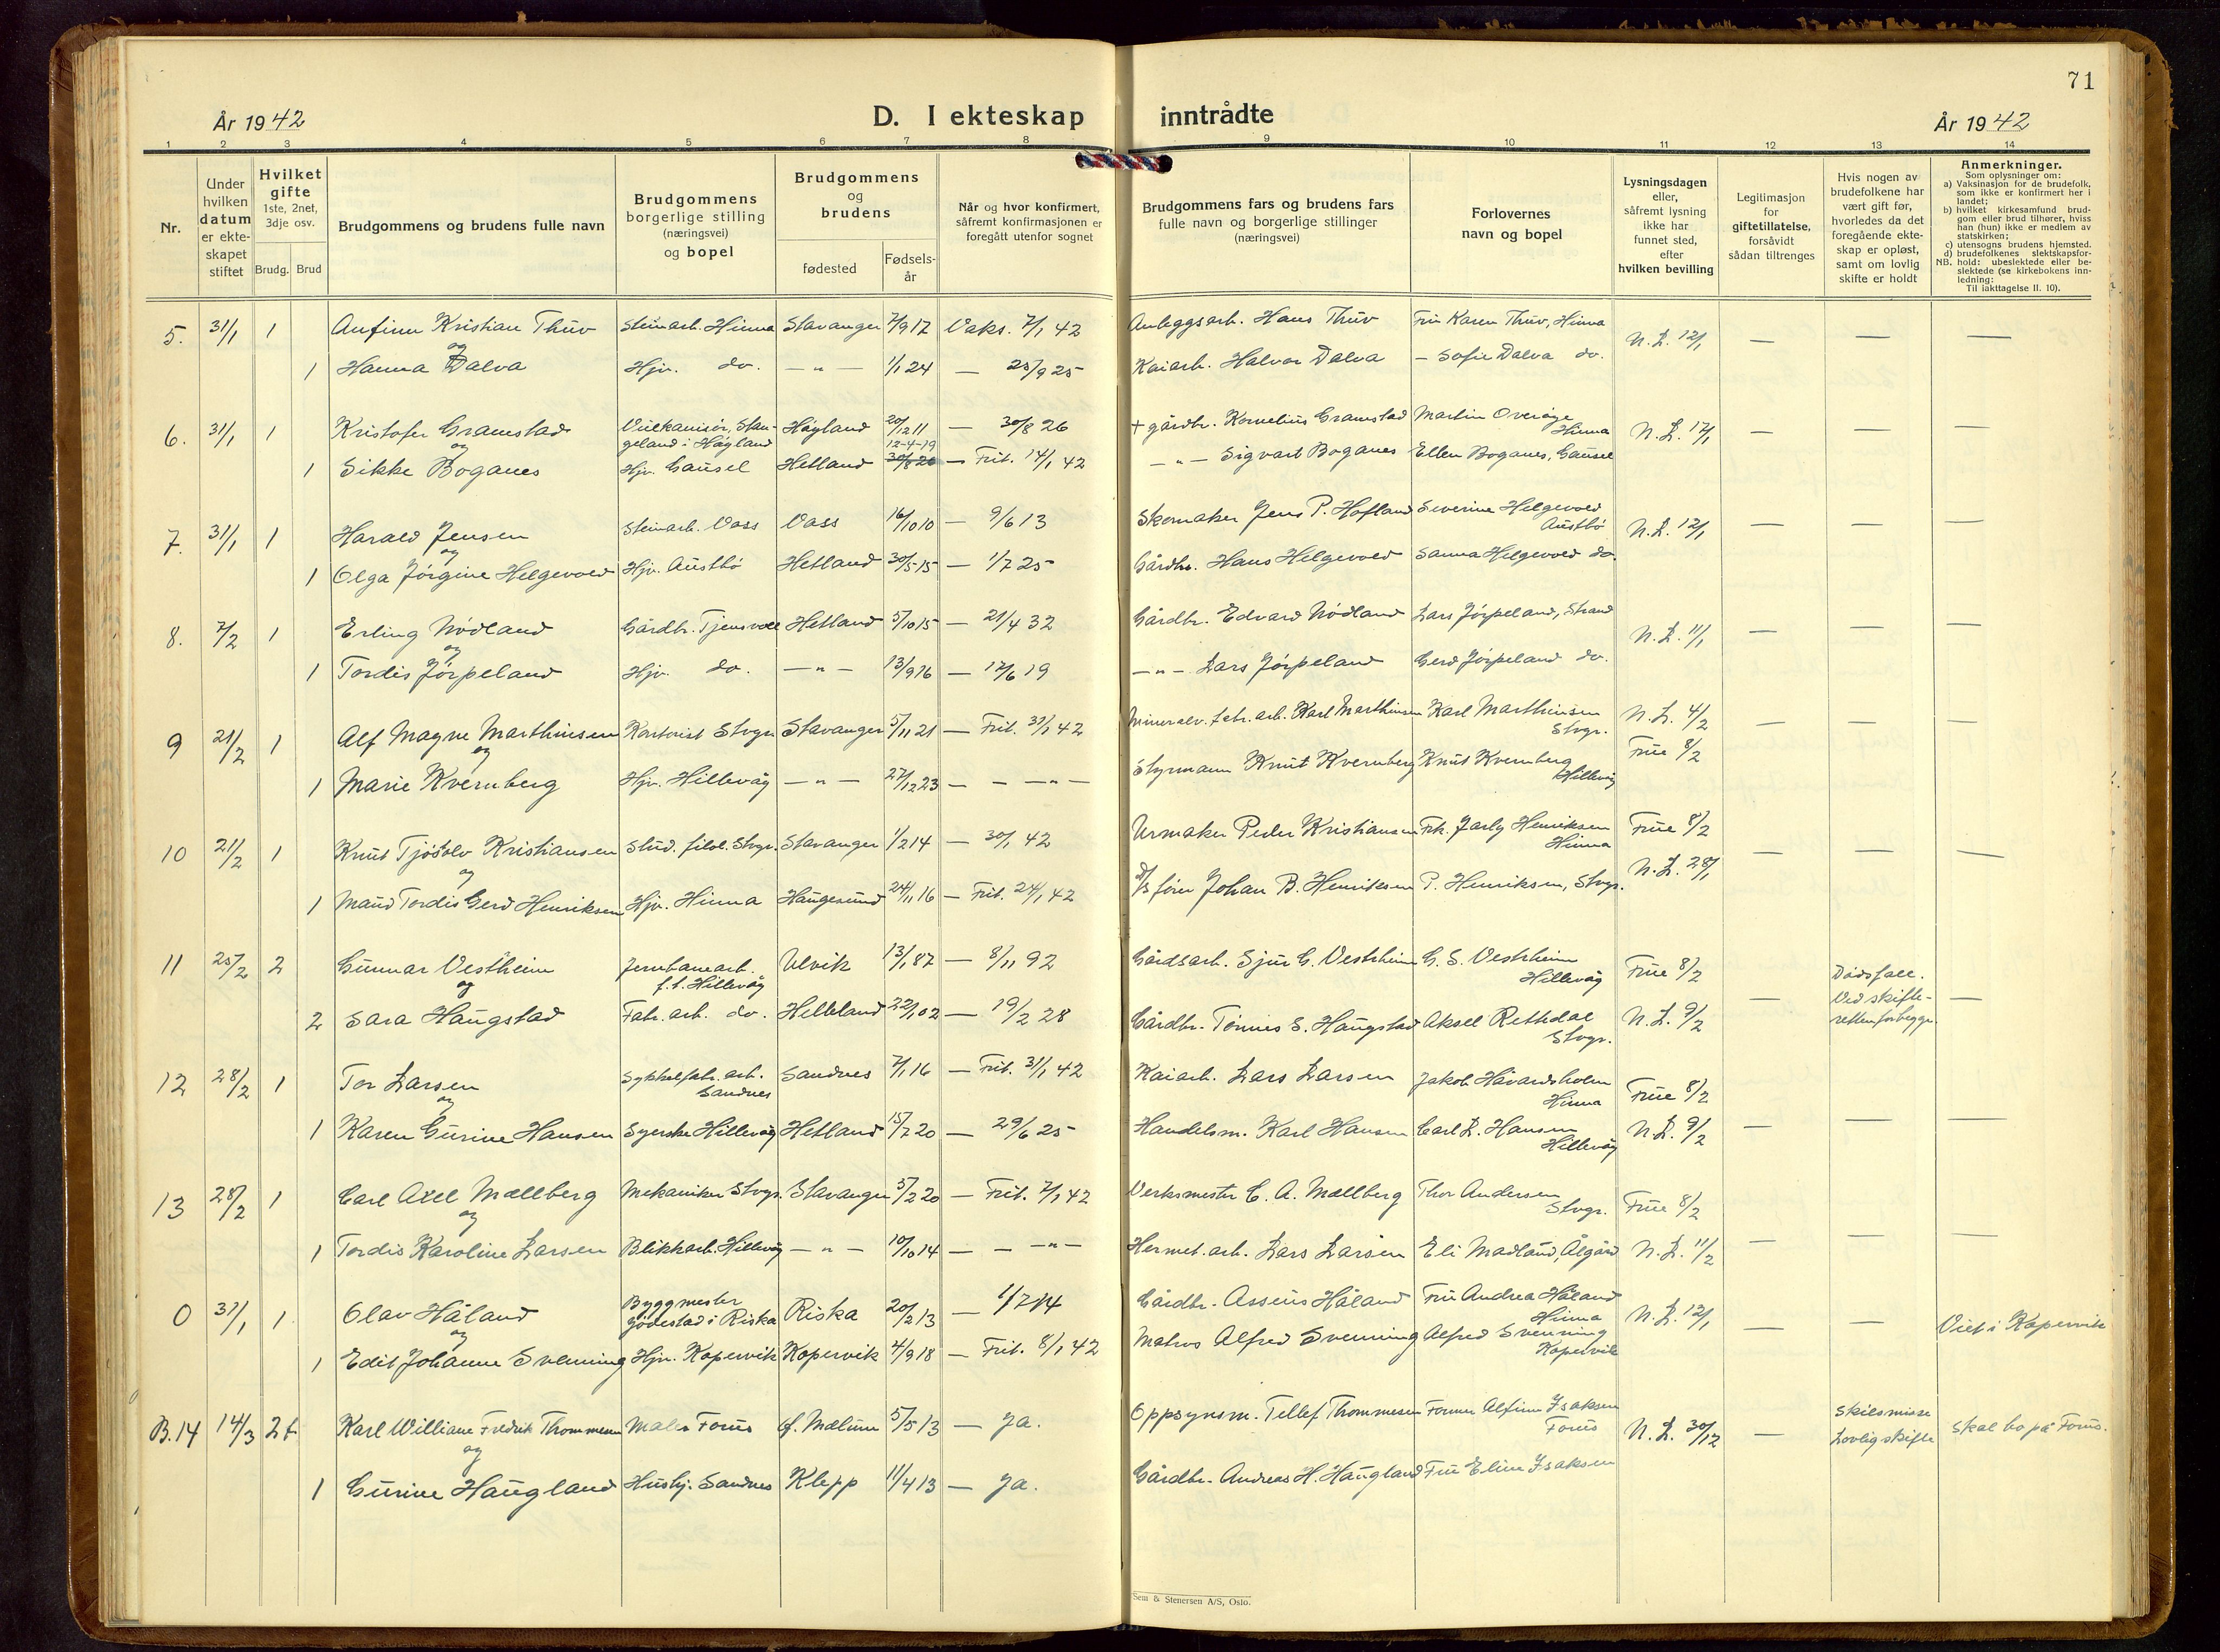 71
År 1942
D. I ekteskap inntrådte
År 1942
1 2 3 4 5 6 7 8 9 10 11 12 13 14
Nr.
Under hvilken datum er ekte-skapet stiftet
Hvilket gifte 1ste, 2net, 3dje osv.
Brudg. Brud
Brudgommens og brudens fulle navn
Brudgommens borgerlige stilling (næringsvei) og bopel
Brudgommens og brudens
fødested
Fødsels-år
Når og hvor konfirmert, såfremt konfirmasjonen er foregått utenfor sognet
Brudgommens fars og brudens fars fulle navn og borgerlige stillinger (næringsvei)
Forlovernes navn og bopel
Lysningsdagen eller, såfremt lysning ikke har funnet sted, efter hvilken bevilling
Legitimasjon for giftetillatelse, forsåvidt sådan tiltrenges
Hvis nogen av brudefolkene har vært gift før, hvorledes da det foregående ekte-skap er opløst, samt om lovlig skifte er holdt
Anmerkninger.
Som oplysninger om:
a) Vaksinasjon for de brudefolk, som ikke er konfirmert her i landet;
b) hvilket kirkesamfund brud-gom eller brud tilhører, hviss han (hun) ikke er medlem av statskirken;
c) utensogns brudens hjemsted.
d) brudefolkenes slektskapsfor-
NB. hold: ubeslektede eller be-slektede (se kirkebokens inn-ledning:
Til iakttagelse II. 10).
5. 31/1 1 Anfinn Kristian Thuv Steinarb. Hinna Stavanger 7/9 17 Vaks. 7/1 42 Anleggsarb. Hans Thuv Fru Karen Thuv, Hinna N.L. 12/1 — — —
og
1 Hanna Dalva Hjv. do. — " — 1/1 24 — 25/9 25 Kaiarb. Halvor Dalva — Sofie Dalva do.
6. 31/1 1 Kristofer Gramstad Vulkanisør, Stan-geland i Høyland Høyland 20/12 11 — 30/8 26 + gårdbr. Kornelius Gramstad Martin Overøye Hinna N.L. 17/1 — — —
og
12-4-19
1 Sikke Boganes Hjv. Gausel Hetland 30/8 20 — Frit. 14/1 42 — " — Sigvart Boganes Ellen Boganes, Gausel
7. 31/1 1 Harald Jensen Steinarb. Voss Voss 16/10 10 — 9/6 13 Skomaker Jens P. Hofland Severine Helgevold Austbø N.L. 12/1 — — —
og
1 Olga Jørgine Helgevold Hjv. Austbø Hetland 30/5 15 — 1/7 25 Gårdbr. Hans Helgevold Sanna Helgevold do.
8. 7/2 1 Erling Nødland Gårdbr. Tjensvoll Hetland 5/10 15 — 21/4 32 Gårdbr. Edvard Nødland Lars Jørpeland, Strand N.L. 11/1 — — —
og
1 Tordis Jørpeland Hjv. do. — " — 13/9 16 — 17/6 19 — " — Lars Jørpeland Gerd Jørpeland do.
9 21/2 1 Alf Magne Marthinsen Kontorist Stvgr. Stavanger 5/11 21 — Frit. 31/1 42 Mineralv. fabr. arb. Karl Marthinsen Karl Marthinsen Stvgr. N.L. 4/2 — — —
og
Frue 8/2
1 Marie Kvernberg Hjv. Hillevåg — " — 27/12 23 — — " — Styrmann Knut Kvernberg Knut Kvernberg Hillevåg
10 21/2 1 Knut Tjøsolv Kristiansen Stud. filol. Stvgr. Stavanger 1/2 14 — 30/1 42 Urmaker Peder Kristiansen Frk. Jarly Henriksen Hinna Frue 8/2 — — —
og
1 Maud Tordis Gerd Henriksen Hjv. Hinna Haugesund 24/11 16 — Frit. 24/1 42 Johan B. Henriksen P. Henriksen, Stvgr. N.L. 28/1
11 25/2 2 Gunnar Vestheim Jernbanearb. f.t. Hillevåg Ulvik 13/1 87 — 8/11 92 Gårdsarb. Sjur G. Vestrheim G. S. Vestrheim Hillevåg Frue 8/2 — Dødsfall. Ved skifte-retten for begge. —
og
2 Sara Haugstad Fabr. arb. do. Helleland 22/1 02 — 19/2 28 Gårdbr. Tønnes S. Haugstad Aksel Rettedal Stvgr. N.L. 9/2
12 28/2 1 Tor Larsen Sykkelfabr. arb. Sandnes Sandnes 7/1 16 — Frit. 31/1 42 Kaiarb. Lars Larsen Jakob Håvardsholm Hinna Frue 8/2 — — —
og
1 Karen Gurine Hansen Syerske Hillevåg Hetland 15/7 20 — 29/6 25 Handelsm. Karl Hansen Carl L. Hansen Hillevåg N.L. 9/2
13 28/2 1 Carl Axel Mællberg Mekaniker Stvgr. Stavanger 5/2 20 — Frit. 7/1 42 Verksmester C. A. Mællberg Thor Andersen Stvgr. Frue 8/2
og
1 Tordis Karoline Larsen Blikkarb. Hillevåg — " — 10/10 14 — — " — Hermet. arb. Lars Larsen Eli Madland, Ålgård N.L. 11/2 — — —
0 31/1 1 Olav Håland Byggmester Jødestad i Riska Riska 20/2 13 — 1/7 14 Gårdbr. Asseus Håland Fru Andrea Håland Hinna N.L. 12/1 — — Viet i Kopervik
og
1 Edit Johanne Svenning Hjv. Kopervik Kopervik 4/9 18 — Frit. 8/1 42 Matros Alfred Svenning Alfred Svenning Kopervik
B. 14 14/3 2 f. Karl William Fredrik Thommesen Maler Forus Gj. Mælum 5/5 13 — ja. Oppsynsm. Tellef Thommesen Former Alfinn Isaksen Forus N.L. 30/12 — Skilsmisse Lovlig skifte Skal bo på Forus.
og
1 Gurine Haugland Hushj. Sandnes Klepp 11/4 13 — ja. Gårdbr. Andreas H. Haugland Fru Eline Isaksen
Sem & Stenersen A/S, Oslo.